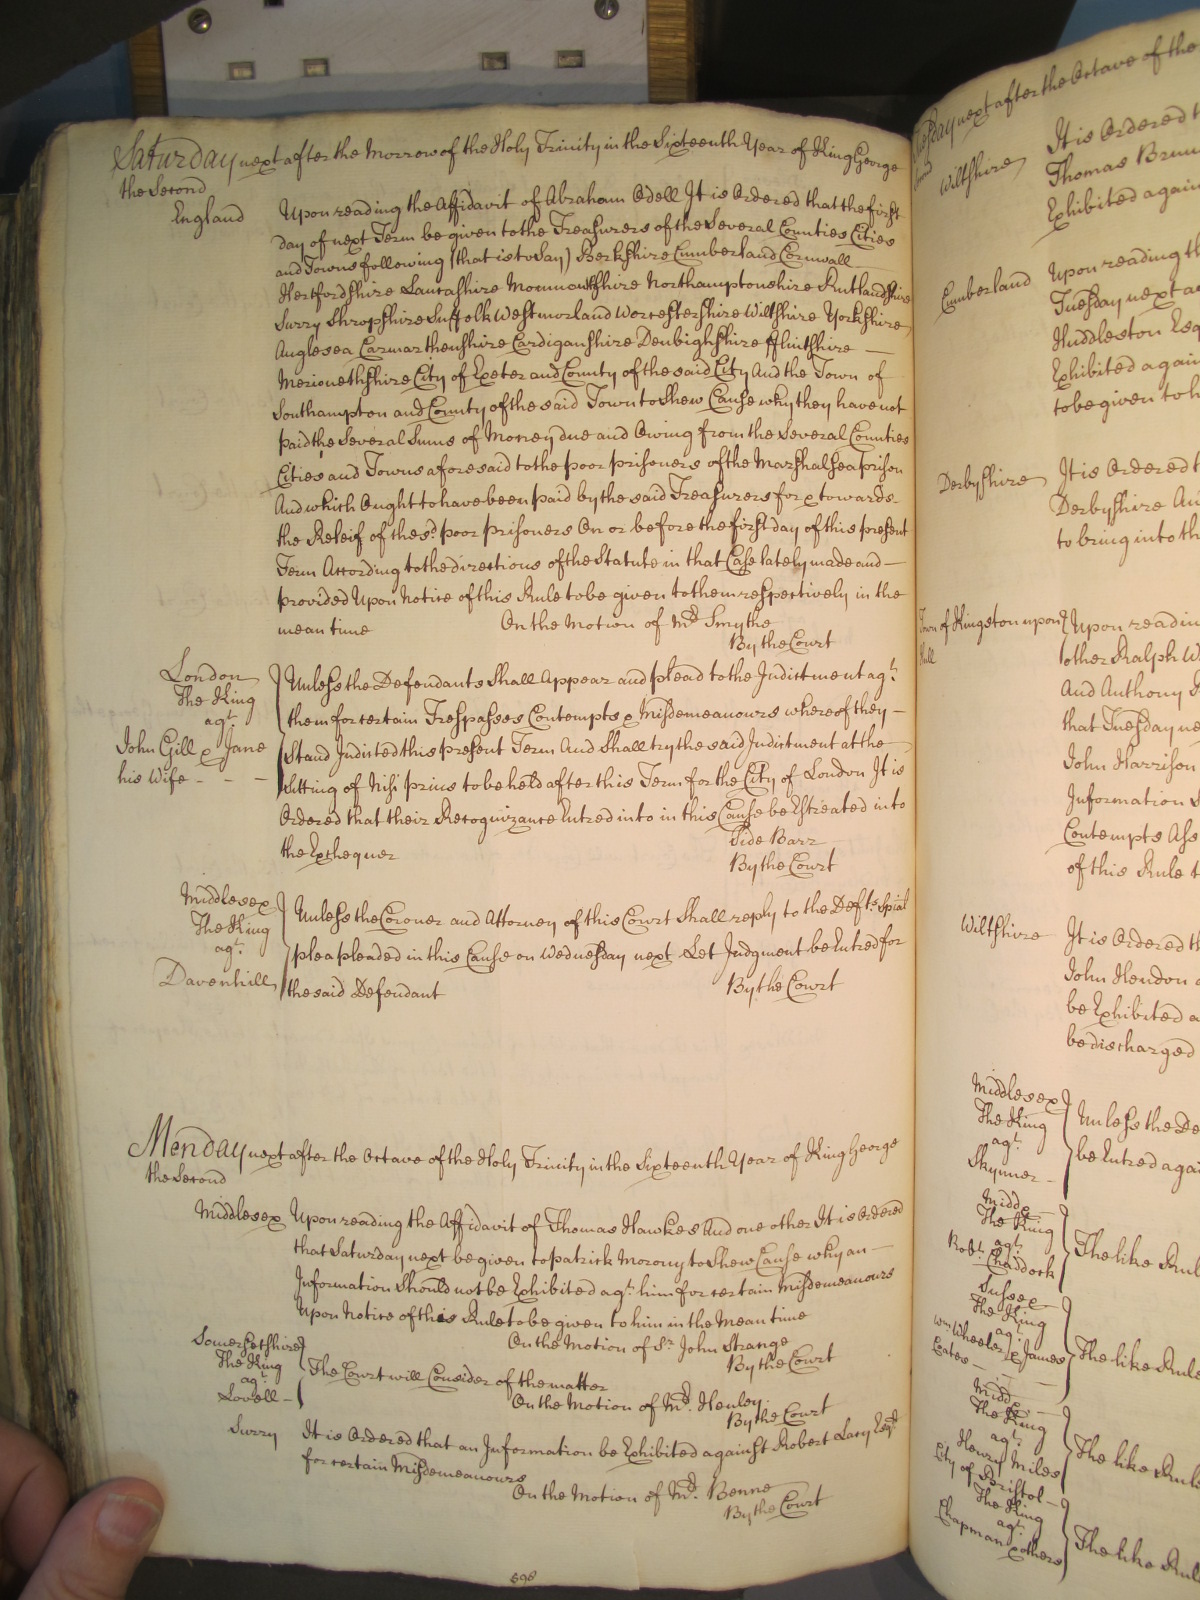 Saturday next after the Morrow of the Holy Trinity in the Sixteenth Year of King George
the Second
England
Upon reading the Affidavit of Abraham Odell It is Ordered that the first
day of next Term be given to the Treasurers of the Several Counties Cities
and Towns following (that is to Say) Berkshire Cumberland Cornwall
Hertfordshire Lancashire Monmouthshire Northamptonshire Rutlandshire
Surry Shropshire Suffolk Westmorland Worcestershire Wiltshire Yorkshire
Anglesea Carmarthenshire Cardiganshire Denbighshire fflintshire —
Merionethshire City of Exeter and County of the said City And the Town of
Southampton and County of the said Town to Shew Cause why they have not
paid the Several Sums of Money due and Owing from the Several Counties
Cities and Towns aforesaid to the poor prisoners of the Marshalsea prison
And which Ought to have been paid by the said Treasurers for & towards
the Releif of the sd. poor prisoners On or before the first day of this present
Term According to the directions of the Statute in that Case lately made and —
provided Upon Notice of this Rule to be given to them respectively in the
mean time
On the Motion of Mr. Smythe
By the Court
London
The King
agt.
John Gill & Jane
his Wife - - -
Unless the Defendants Shall Appear and plead to the Indictment agt.
them for certain Trespasses Contempts & Misdemeanours whereof they —
Stand Indicted this present Term And Shall try the said Indictment at the
Sitting of Nisi prius to be held after this Term for the City of London It is
Ordered that their Recognizance Entred into in this Cause be Estreated into
the Exchequer
Side Barr
By the Court
Middlesex
The King
agt.
Davenhill
Unless the Coroner and Attorney of this Court Shall reply to the Defts. Spial
plea pleaded in this Cause on Wednesday next Let Judgment be Entred for
the said Defendant
By the Court
Monday next after the Octave of the Holy Trinity in the Sixteenth Year of King George
the Second
Middlesex
Upon reading the Affidavit of Thomas Hawkes And one other It is Ordered
that Saturday next be given to patrick Morony to Shew Cause why an —
Information Should not be Exhibited agt. him for certain Misdemeanours
Upon Notice of this Rule to be given to him in the Mean time
On the Motion of Sr. John Strange
By the Court
Somersetshire
The King
agt.
Lovell —
The Court will Consider of the matter
On the Motion of Mr. Henley
By the Court
Surry
It is Ordered that an Information be Exhibited against Robert Lary Esqr.
for certain Misdemeanours
On the Motion of Mr. Benne
By the Court
598
Tuesday next after the Octave of the
Wiltshire
It is Ordered
Thomas
Exhibited again
Cumberland
Upon reading th
Tuesday next a
Huddleston Esq
Exhibited again
to be given to h
Derbyshire
It is Ordered t
Derbyshire An
to bring into th
Town of Kingston upon
Hull
Upon readin
other Ralph W
And Anthony
that Tuesday ne
John Harrison
Information S
Contempts
of this Rule t
Wiltshire
It is Ordered th
John Hendon
be Exhibited a
be discharged
Middlesex
The King
agt.
Skynner —
Unless the De
be Entred agai
Middx
The King
agt.
Robt. Chaddock
The like Rul
Sussex
The King
agt.
Wm. Wheeler & James
Eates —
The like Rule
Middx —
The King
agt.
Henry Miles
The like Rule
City of Bristol —
The King
agt.
Chapman & others
The like Rul